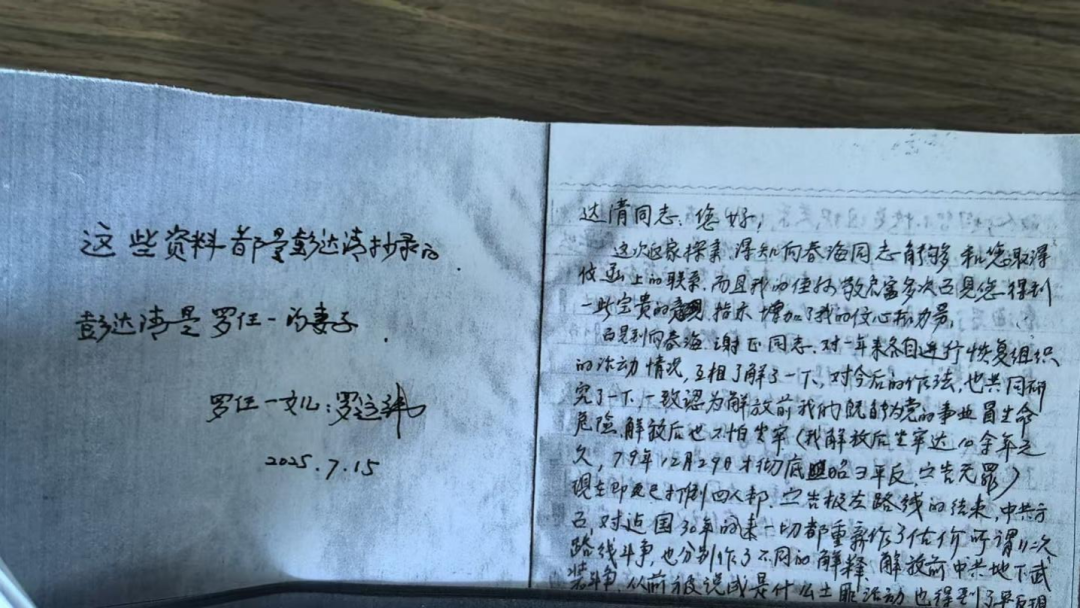 这些资料都是彭达清抄录的.
彭达清是罗任一的妻子.
罗任一女儿:罗
2025.7.15
达清同志、您好,
这次返家探亲,得知向春海同志能够和您取得
信函上的联系,而且我的侄 敬 多次召见您,得到
一些宝贵的 指示,增加了我的信心和力量,
召见到向春海、谢正同志,对一年来各自进行恢复组织
的活动情况,互相了解了一下,对今后的作法,也共同研
究了一下,一致认为解放前我们既能为党的事业冒生命
危险,解放后也不怕坐牢(我解放后坐牢达10余年之
久,79年12月29日才彻底 平反,宣告无罪)
现在即是已打倒四人邦、宣告极左路线的结束,中共方
召,对近国30年的来一切都重新作了估价,所谓11次
路线斗争,也分别作了不同的解释、解放前中共地下武
装斗争,从前被说成是什么土匪活动也得到了